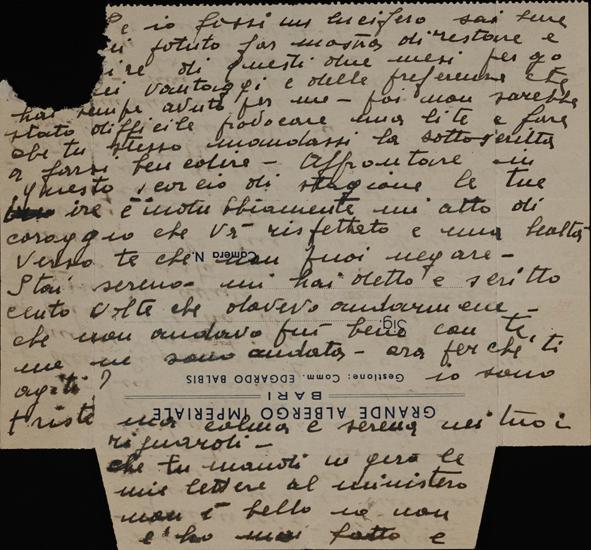 Se io fossi un lucifero sai bene
potuto far mostra di restare e
ire di questi due mesi per go
dei vantaggi e delle preferenze che
hai sempre avuto per me - poi non sarebbe
stato difficile provocare una lite e fare
che tu stesso mandassi la sottoscritta
a farsi benedire - Affrontare in
questo scorcio di stagione le tue
ire è indubbiamente un atto di
coraggio che va rispettato e una lealtà
verso te che non puoi negare -
Camera N.
Stai sereno - mi hai detto e scritto
cento volte che dovevo andarmene -
che non andavo più bene con te,
Sig.
me ne sono andata - ora perchè ti
agiti? io sono
Gestione: Comm. EDGARDO BALBIS
BARI
GRANDE ALBERGO IMPERIALE
triste ma calma e serena nei tuoi
riguardi -
che tu mandi in giro le
mie lettere al ministero
non è bello io non
l'ho mai fatto e